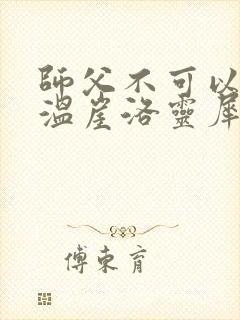 師父不可以
溫崖洛靈犀
傅束育